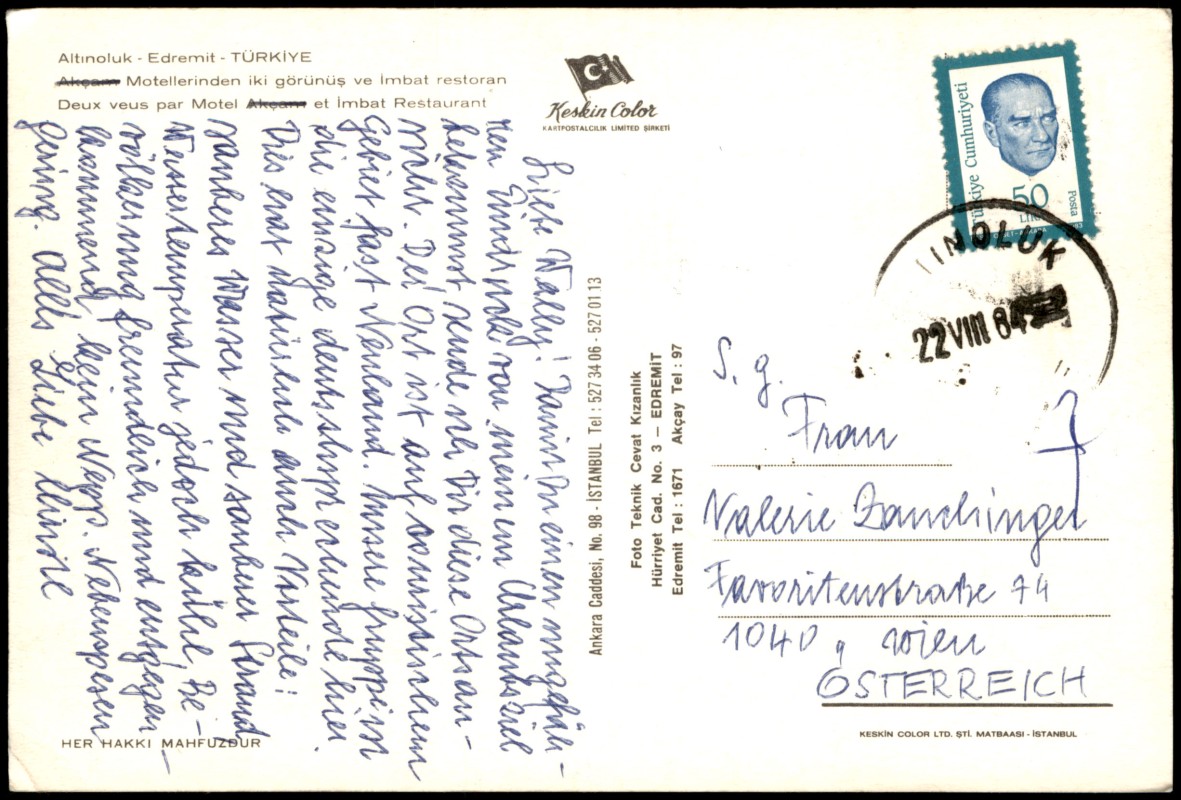 Altınoluk - Edremit - TÜRKİYE
Akçam Motellerinden iki görünüş ve İmbat restoran
Deux veus par Motel Akçam et İmbat Restaurant
Keskin Color
KARTPOSTALCILIK LIMITED ŞİRKETİ
Türkiye Cumhuriyeti
50
LİRA
Posta
INOLUK
22 VIII 84
Liebe Vally! Damit Du einen ungefäh-
ren Eindruck von meinem Urlaubsziel
bekommst sende ich Dir diese Ortsan-
sicht. Der Ort ist auf touristischem
Gebiet fast Neuland. Unsere Gruppe ist
die einzige deutschsprechende hier.
Dies hat natürlich auch Vorteile!
sauberes Wasser und sauberer Strand
Wassertemperatur jedoch kühl, Be-
völkerung freundlich und entgegen-
kommend, kein Nepp. Nebenspesen
gering. Alles Liebe
Ankara Caddesi, No. 98 - İSTANBUL Tel : 527 34 06 - 527 01 13
Foto Teknik Cevat Kızanlık
Hürriyet Cad. No. 3 — EDREMİT
Edremit Tel : 1671 Akçay Tel : 97
S. g.
Frau
Valerie Zauchinger
Favoritenstraße 74
1040, Wien
ÖSTERREICH
HER HAKKI MAHFUZDUR
KESKIN COLOR LTD. ŞTİ. MATBAASI - İSTANBUL